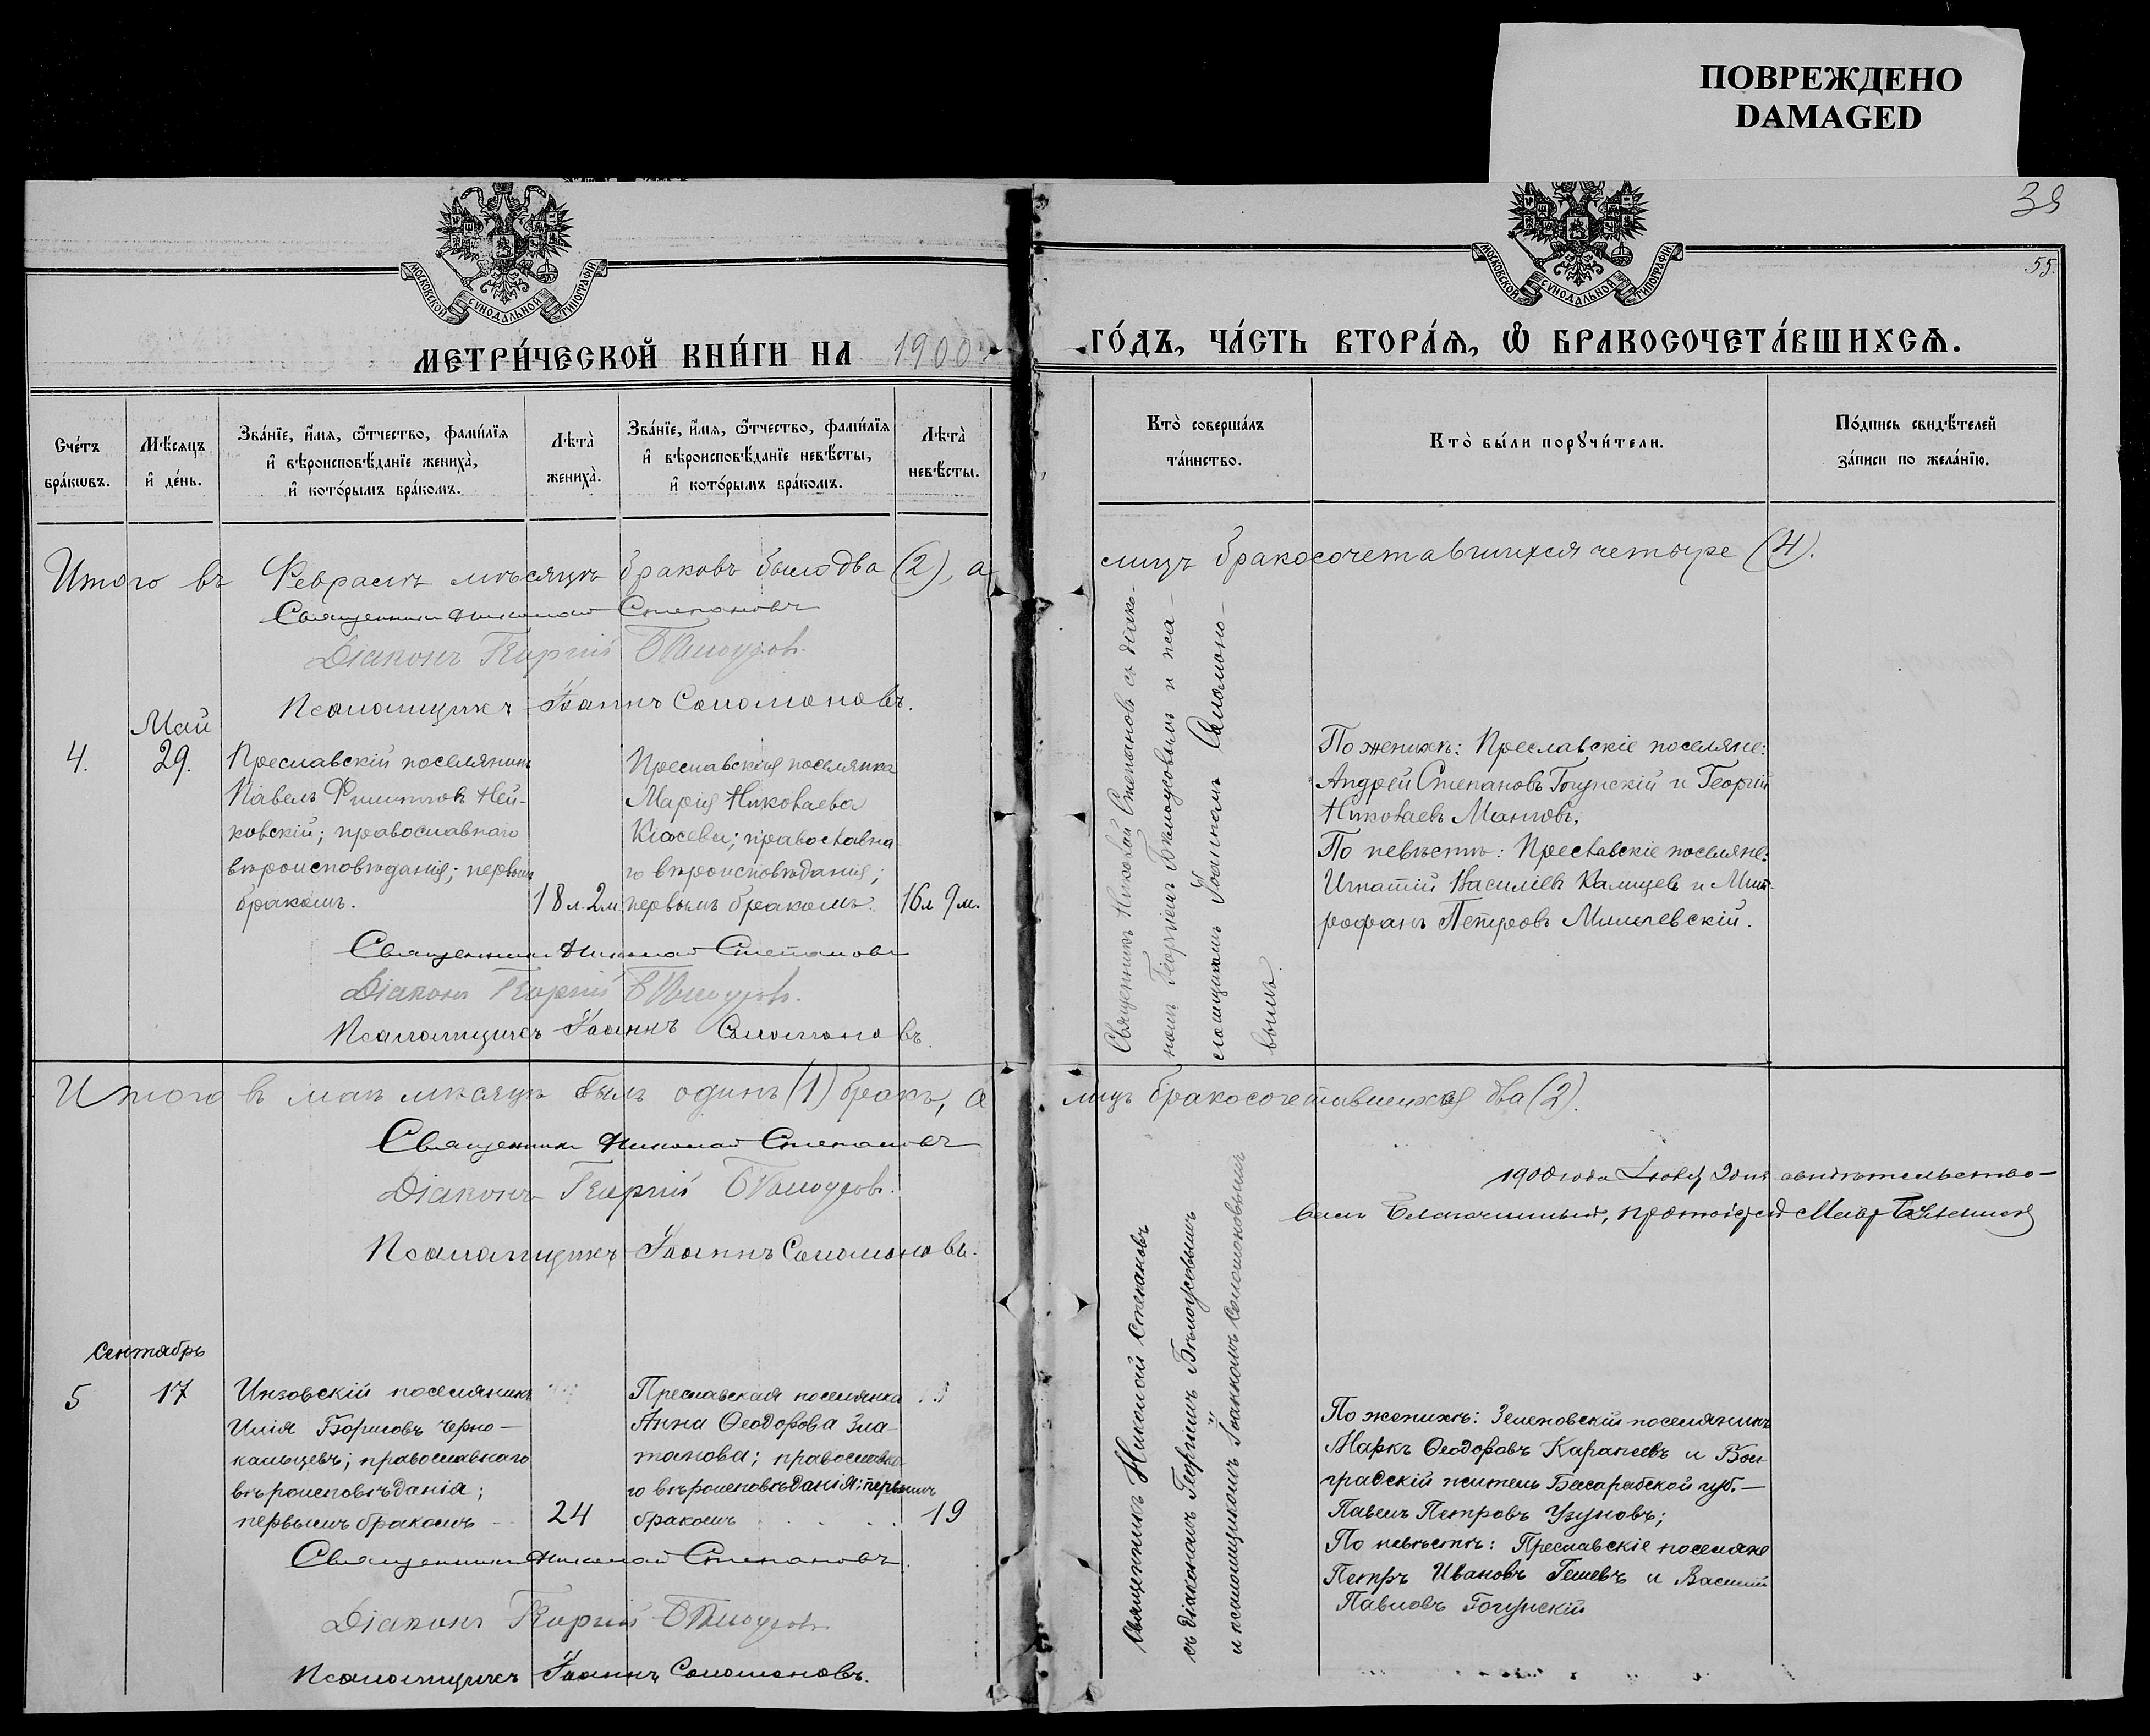 ПОВРЕЖДЕНО
DAMAGED
39
55.
МОСКОВСКОЙ СѴНОДАЛЬНОЙ ТИПОГРАФІИ
МОСКОВСКОЙ СѴНОДАЛЬНОЙ ТИПОГРАФІИ
МЕТРИ́ЧЕСКОЙ КНИ́ГИ НА 1900
ГО́ДЪ, ЧА́СТЬ ВТОРА́Ѧ, Ѡ҆ БРАКОСОЧЕТА́ВШИХСѦ.
Сче́тъ
бра́кѡвъ.
Мѣ́сяцъ
и҆ де́нь.
Зва́нїе, и҆́мѧ, ѻ҆́тчество, фами́лїѧ
и҆ вѣроисповѣ́данїе жениха̀,
и҆ кото́рымъ бра́комъ.
Лѣта̀
жениха̀.
Зва́нїе, и҆́мѧ, ѻ҆́тчество, фами́лїѧ
и҆ вѣроисповѣ́данїе невѣ́сты,
и҆ кото́рымъ бра́комъ.
Лѣта̀
невѣ́сты.
Кто̀ соверша́лъ
та́инство.
Кто̀ бы́ли порꙋчи́тели.
По́дпись свидѣ́телей
за́писи по жела́нїю.
Итого въ Февралѣ мѣсяцѣ браковъ было два (2), а
лицъ бракосочетавшихся четыре (4).
Священникъ Николай Степановъ
Діаконъ Георгій Бѣлоусовъ.
Псаломщикъ Іоаннъ Соломоновъ.
Май
4.
29.
Преславскій поселянинъ
Павелъ Филипповъ Ней-
ковскій; православнаго
вѣроисповѣданія; первымъ
бракомъ.
18 л. 2 м.
Преславская поселянка
Марія Николаева
Кіосева; православна
го вѣроисповѣданія;
первымъ бракомъ.
16 л 9 м.
Священникъ Николай Степановъ съ діако-
номъ Георгіемъ Бѣлоусовымъ и пса-
ломщикомъ Іоанномъ Соломоно-
вымъ.
По женихѣ: Преславскіе поселяне:
Андрей Степановъ Гогунскій и Георгій
Николаевъ Мантовъ.
По невѣстѣ: Преславскіе поселяне:
Игнатій Василіевъ Калицевъ и Мит-
рофанъ Петровъ Милчевскій.
Священникъ Николай Степановъ
Діаконъ Георгій Бѣлоусовъ.
Псаломщикъ Іоаннъ Соломоновъ.
Итого въ маѣ мѣсяцѣ былъ одинъ (1) бракъ, а
лицъ бракосочетавшихся два (2).
Священникъ Николай Степановъ
Діаконъ Георгій Бѣлоусовъ.
Псаломщикъ Іоаннъ Соломоновъ.
1900 года дня свидѣтельство-
валъ Благочинный, протоіерей
Сентябрь
5
17
Инзовскій поселянинъ
Илія Борисовъ Черно-
калцевъ; православнаго
вѣроисповѣданія;
первымъ бракомъ
24
Преславская поселянка
Анна Ѳеодорова Зла-
танова; православна
го вѣроисповѣданія; первымъ
бракомъ
19
Священникъ Николай Степановъ
съ діакономъ Георгіемъ Бѣлоусовымъ
и псаломщикомъ Іоанномъ Соломоновымъ
По женихѣ: Зеленовскій поселянинъ
Маркъ Ѳеодоровъ Карапеевъ и Бол
градскій житель Бессарабской губ.
Павелъ Петровъ Узуновъ;
По невѣстѣ: Преславскіе поселяне
Петръ Ивановъ Гешевъ и Василій
Павловъ Гогунскій
Священникъ Николай Степановъ.
Діаконъ Георгій Бѣлоусовъ.
Псаломщикъ Іоаннъ Соломоновъ.